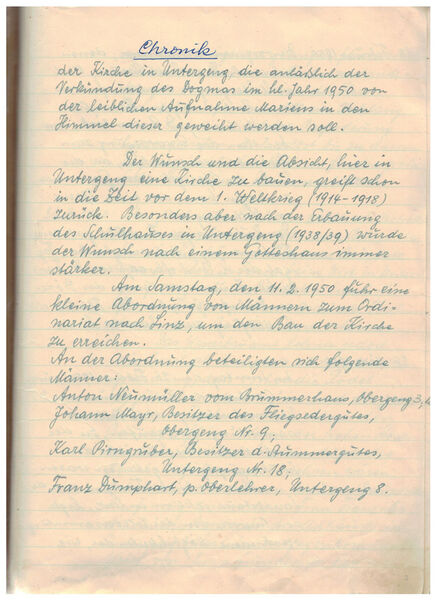 Chronik
der Kirche in Untergeng, die anläßlich der
Verkündung des Dogmas im hl. Jahr 1950 von
der leiblichen Aufnahme Mariens in den
Himmel dieser geweiht werden soll.
Der Wunsch und die Absicht, hier in
Untergeng eine Kirche zu bauen, greift schon
in die Zeit vor dem 1. Weltkrieg (1914-1918)
zurück. Besonders aber nach der Erbauung
des Schulhauses in Untergeng (1938/39) wurde
der Wunsch nach einem Gotteshaus immer
stärker.
Am Samstag, den 11. 2. 1950 fuhr eine
kleine Abordnung von Männern zum Ordi-
nariat nach Linz, um den Bau der Kirche
zu erreichen.
An der Abordnung beteiligten sich folgende
Männer:
Anton Neumüller vom Brummerhaus, Obergeng 3,
Johann Mayr, Besitzer des Fliegsedergutes,
Obergeng Nr. 9;
Karl Pirngruber, Besitzer d. Aummergutes,
Untergeng Nr. 18;
Franz Dumphart, p. Oberlehrer, Untergeng 8.